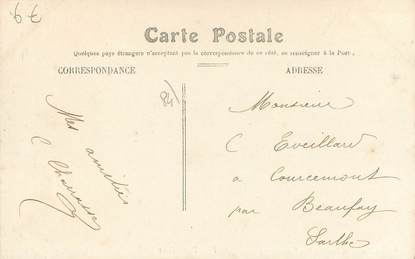 67
Carte Postale
Quelques pays étrangers n'acceptent pas la correspondance de ce côté, se renseigner à la Poste.
CORRESPONDANCE
ADRESSE
84
Mes amitiés
C
Monsieur
C Eveillard
a Courcemont
par Beaufay
Sarthe